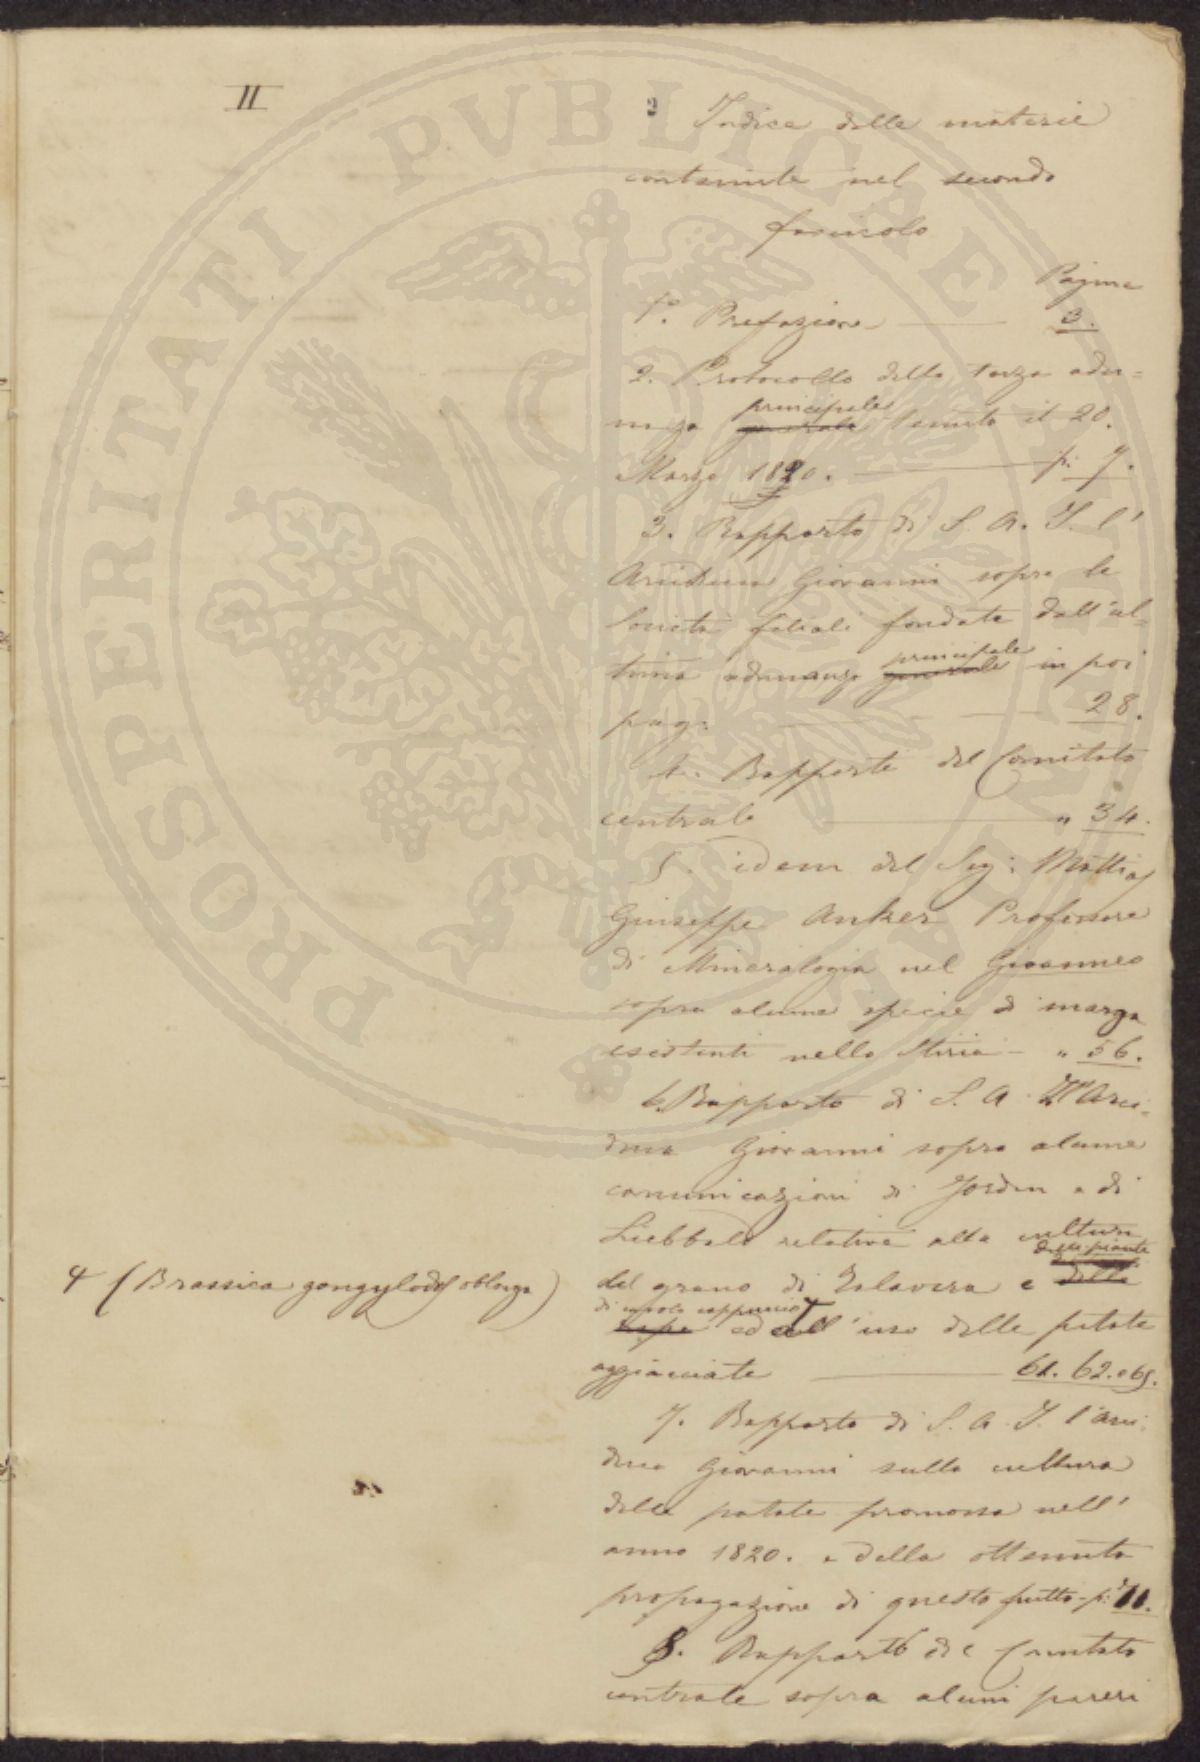 II
2 Indice delle materie
contenute nel secondo
fascicolo
Pagine
1°. Prefazione 3.
2. Protocollo della terza adu=
principale
nanza generale tenuta il 20.
Marzo 1820. p: 7.
3. Rapporto di S. A. I. l'
Arciduca Giovanni sopra le
Società filiali fondate dall'ul=
principale
tima adunanza generale in poi
pag: 28.
4. Rapporto del Comitato
centrale " 34.
5. idem del Sig: Mattia
Giuseppe Anker Professore
di Mineralogia nel Gioanneo
sopra alcune specie di marga
esistenti nella Stiria - " 56.
6. Rapporto di S. A. I. l'Arci=
duca Giovanni sopra alcune
comunicazioni di Jordan e di
Liebbald relative alla cultura
delle piante
del grano di Talavera e della
di cavolo cappuccio
rapa ed all'uso delle patate
aggiacciate 61. 62. 65.
7. Rapporto di S. A. I. l'Arci=
duca Giovanni sulla cultura
delle patate promossa nell'
anno 1820. e della ottenuta
propagazione di questo frutto - p: 11.
8. Rapporto del Comitato
centrale sopra alcuni pareri
(Brassica gongylodes oblonga)
PROSPERITATI PVBLICAE